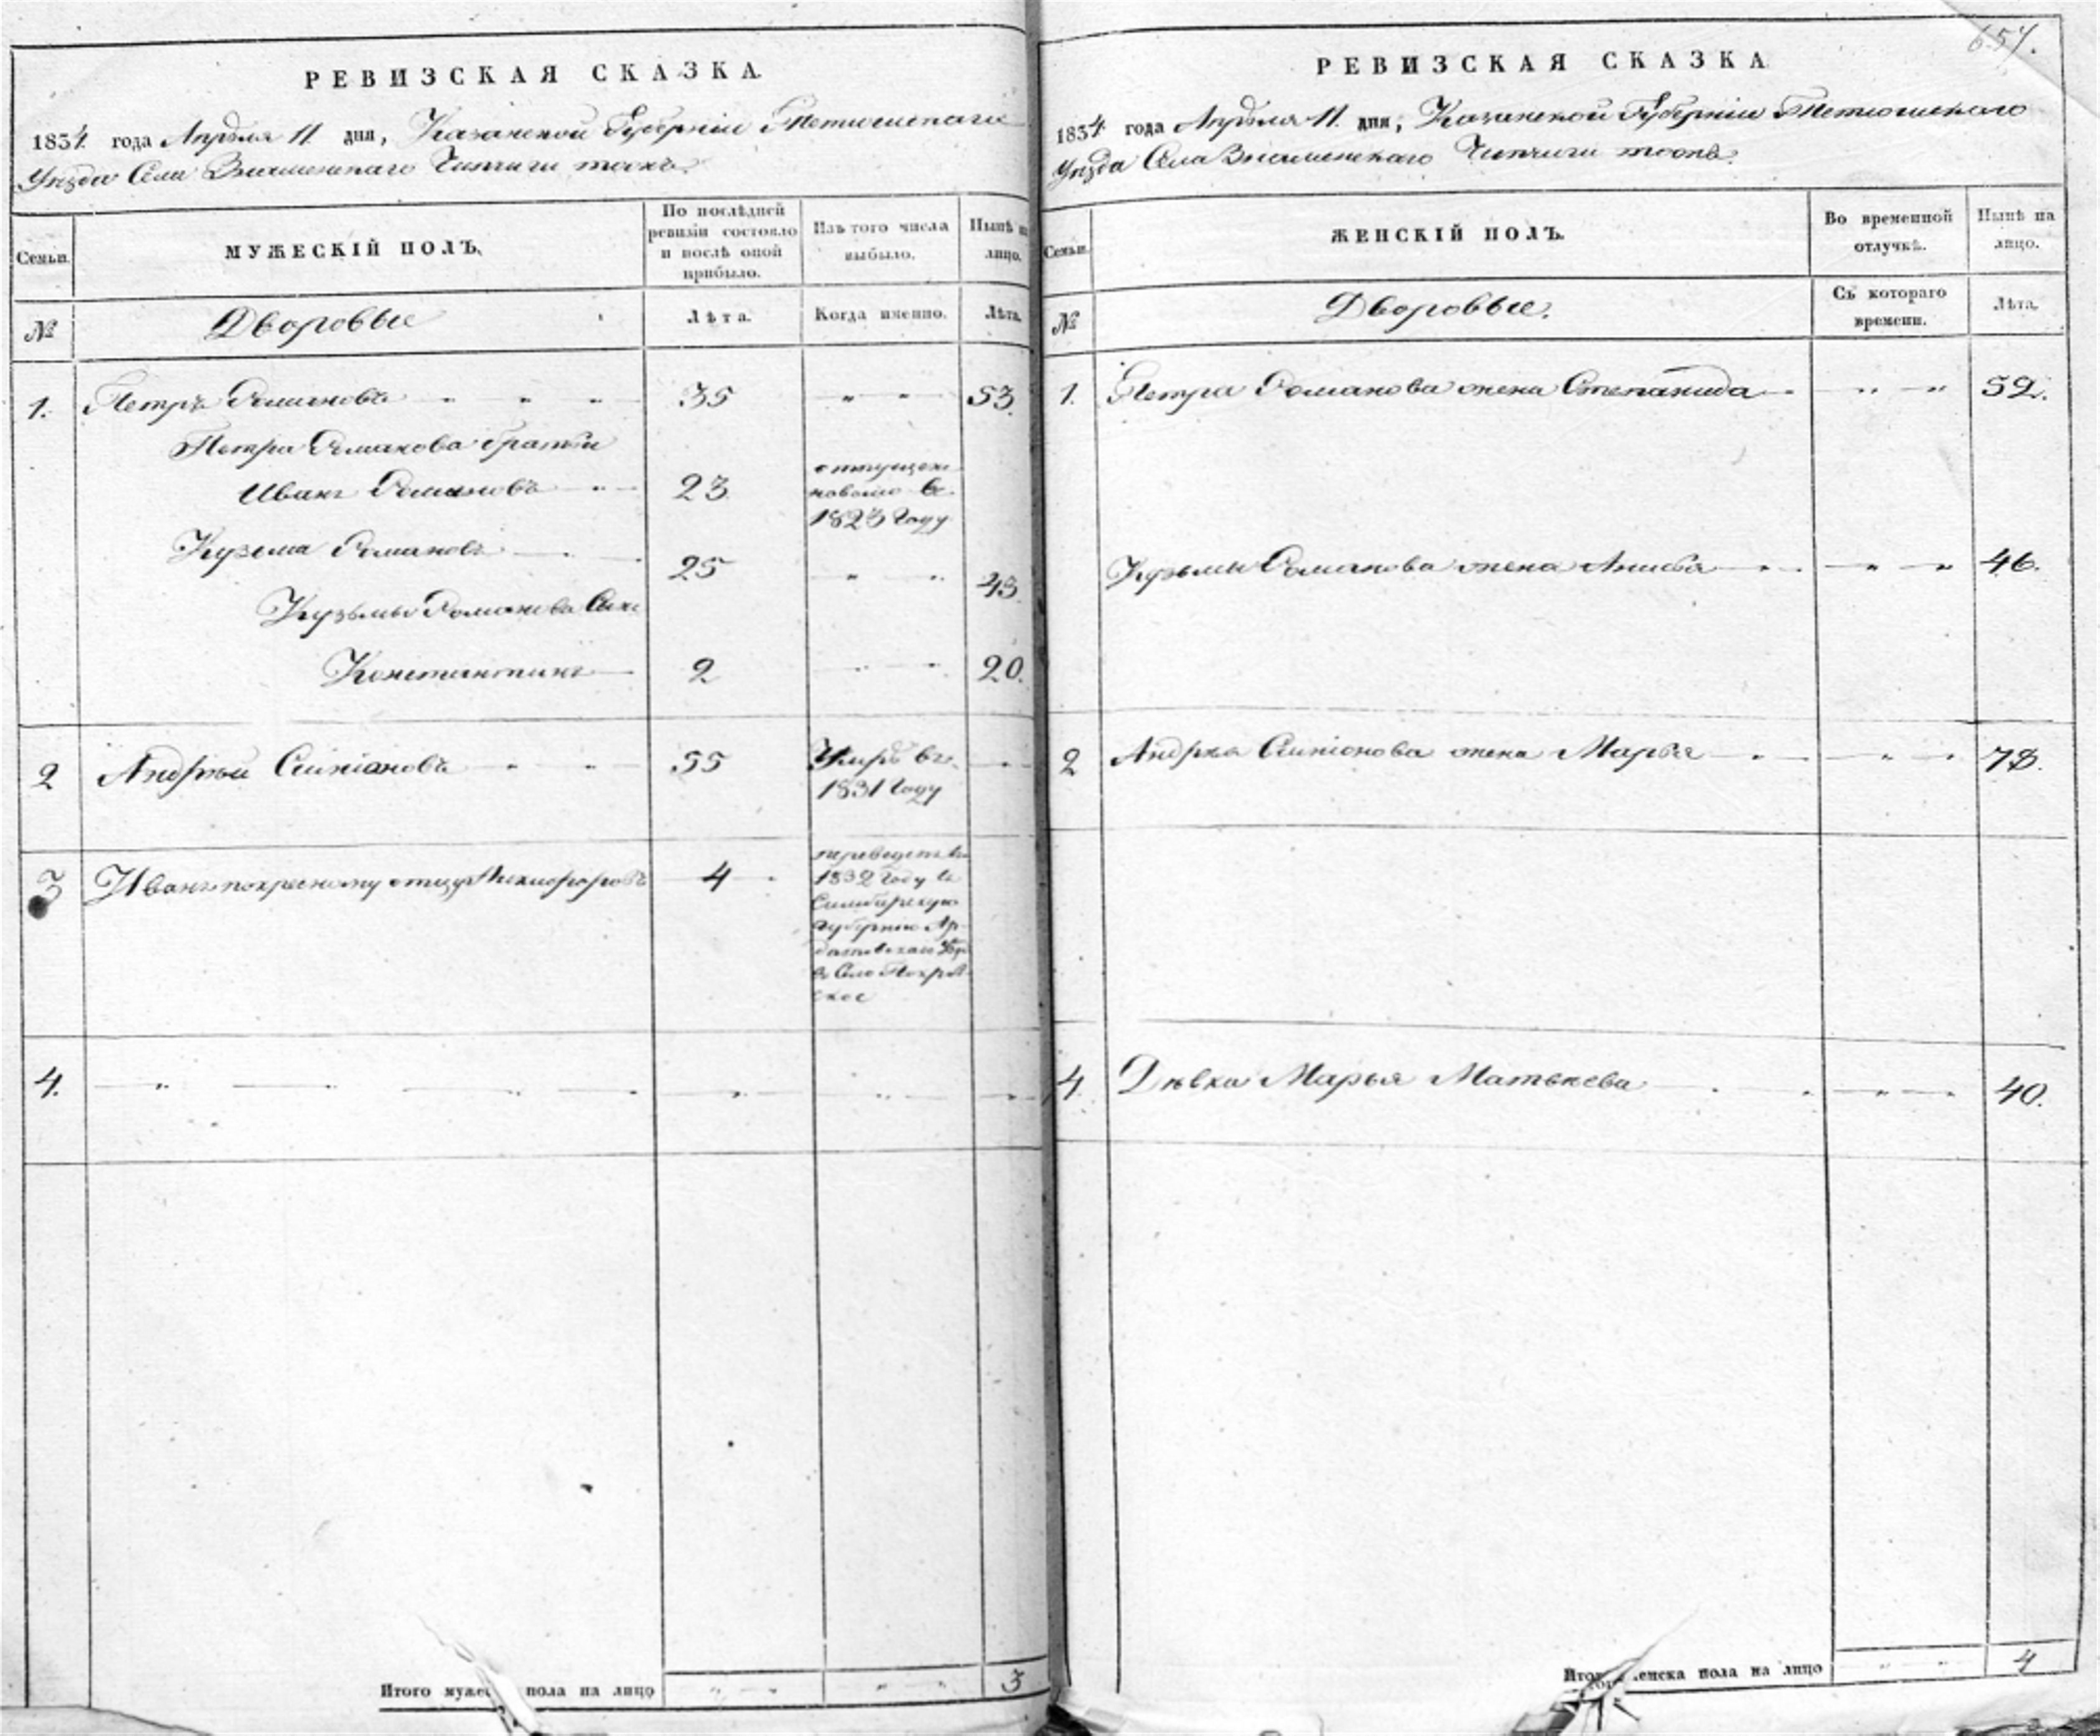 РЕВИЗСКАЯ СКАЗКА
1834 года Апреля 11 дня, Казанской Губерніи Тетюшскаго
Уезда Села Знаменскаго тожъ.
Семьи.
МУЖЕСКІЙ ПОЛЪ.
По послѣдней ревизіи состояло и послѣ оной прибыло.
Изъ того числа выбыло.
Нынѣ на лицо.
№
Дворовые
Лѣта.
Когда именно.
Лѣта.
1. Петръ Романовъ 35 53.
Петра Романова братья
Иванъ Романовъ 23
1823 Году
Кузьма Романовъ 25 43
Кузьмы Романова Сынъ
Константинъ 2 20.
2 Андрей Симіоновъ 55
Умръ въ
1831 Году
3 Иванъ по кресному отцу Никифоровъ 4
переведенъ въ
1832 Году въ
Симбирскую
губернію Ар-
датовскаго
въ Село Покров-
ское
4.
Итого мужеска пола на лицо 3
657.
РЕВИЗСКАЯ СКАЗКА
1834 года Апреля 11 дня, Казанской Губерніи Тетюшскаго
Уезда Села Знаменскаго тожъ.
Семьи.
ЖЕНСКІЙ ПОЛЪ.
Во временной отлучкѣ.
Нынѣ на лицо.
№
Дворовые.
Съ котораго времени.
Лѣта.
1. Петра Романова жена Степанида 52.
Кузьмы Романова жена Анисья 46.
2 Андрея Симіонова жена Марья 78.
4 Дѣвка Марья Матвеева 40.
Итого женска пола на лицо 4